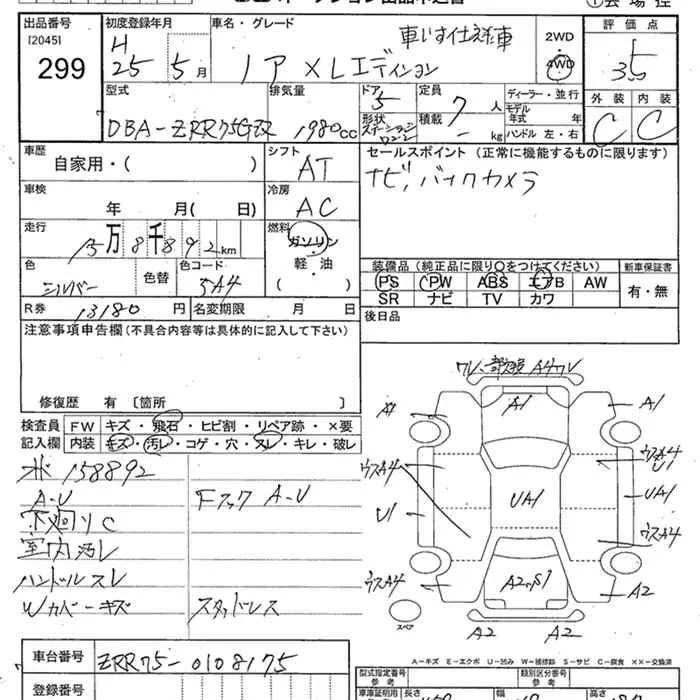 出品番号 初度登録年月 車名・グレード 車いす仕様車 2WD 評価点
[2045] H
299 25 5月 ノア XLエディション 4WD 3.5
外装 内装
C C
型式 排気量 ドア 定員 ディーラー・並行
DBA-ZRR75G改 1980cc 5 7人 モデル年式 年
形状 積載 kg ハンドル 左・右
車歴 シフト セールスポイント(正常に機能するものに限ります)
自家用・( ) AT ナビ,バックカメラ
車検 冷房
年 月( 日) AC
走行 燃料
15万8千892km ガソリン
軽・油
( )
色 色替 色コード 装備品(純正品に限り○をつけてください) 新車保証書
シルバー 5A4 PS PW ABS エアB AW 有・無
SR ナビ TV カワ
R券 13180円 名変期限 月 日 後日品
注意事項申告欄(不具合内容等は具体的に記入して下さい)
修復歴 有 〔箇所 〕
検査員 FW キズ・飛石・ヒビ割・リペア跡・×要
記入欄 内装 キズ・汚レ・コゲ・穴・スレ・キレ・破レ
158892
A-U Fフック A-U
下廻リC
室内汚レ
ハンドルスレ
Wカバーキズ スタッドレス
A1 A1
ウスA4 ウスA4 U1
U1 UA1 UA1
ウスA4 ウスA4
A2,S1 A2
スペア A2 A2
A-キズ E-エクボ U-凹み W-補修跡 S-サビ C-腐食 ××-交換済
車台番号 ZRR75-0108175
登録番号
型式指定番号 参考 類別区分番号 参考
長さ 幅 高さ